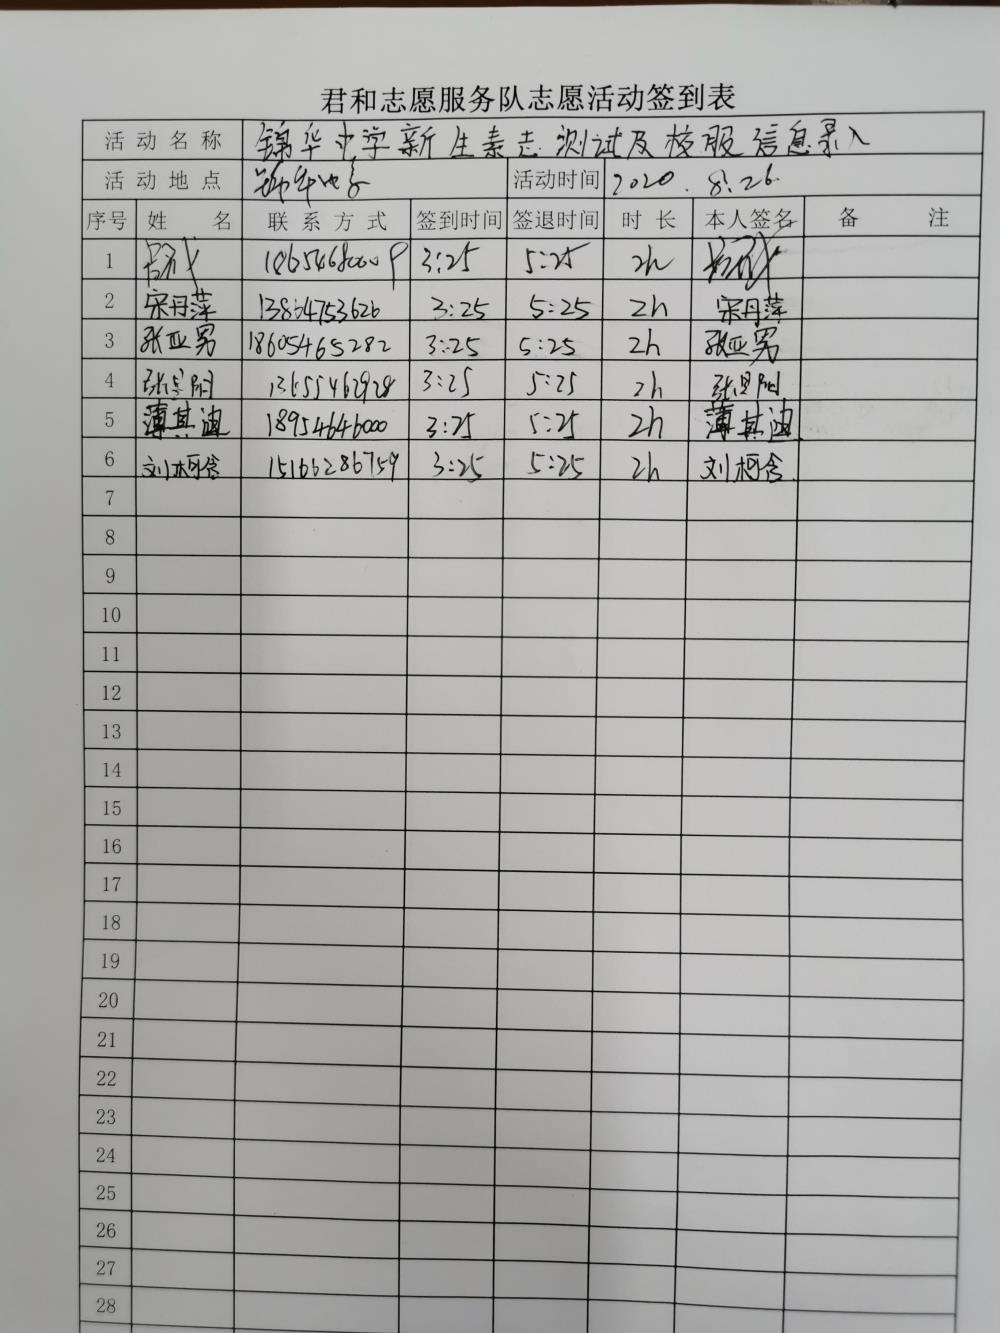 君和志愿服务队志愿活动签到表
活动名称 锦华中学新生素志测试及校服信息录入
活动地点 锦华中学 活动时间 2020.8.26
序号 姓名 联系方式 签到时间 签退时间 时长 本人签名 备注
1 3:25 5:25 2h
2 宋丹萍 13864753626 3:25 5:25 2h 宋丹萍
3 张亚男 18605465282 3:25 5:25 2h 张亚男
4 13655462928 3:25 5:25 2h
5 薄其迪 18954646000 3:25 5:25 2h 薄其迪
6 刘柯含 15166286759 3:25 5:25 2h 刘柯含
7
8
9
10
11
12
13
14
15
16
17
18
19
20
21
22
23
24
25
26
27
28